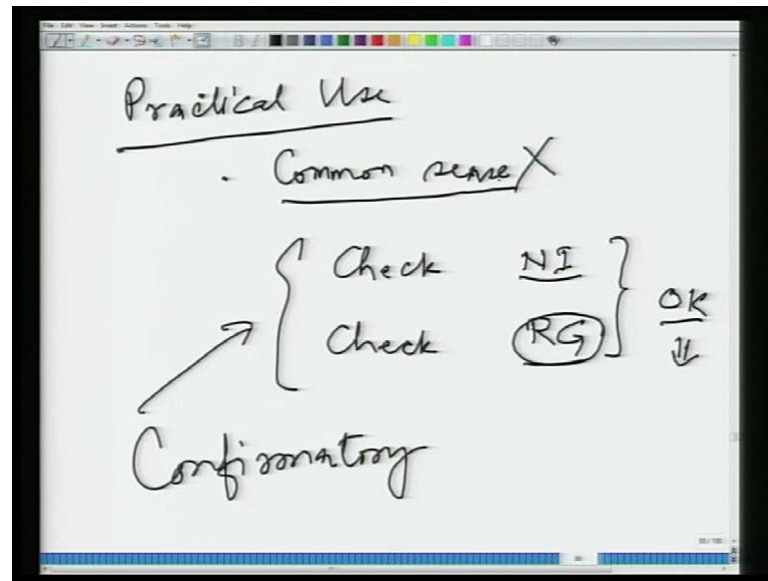 File Edit View Insert Actions Tools Help
Practical Use
. Common sense X
Check NI
OK
Check RG
Confirmatory